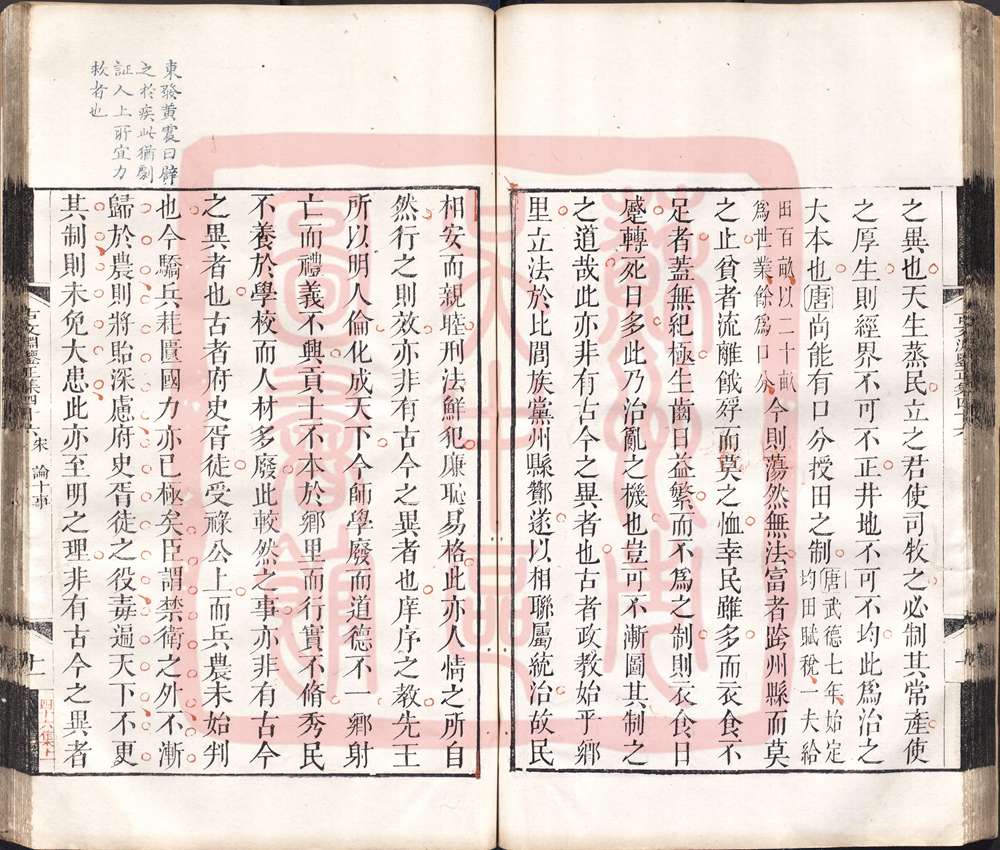 之異也天生蒸民立之君使司牧之必制其常產使
之厚生則經界不可不正井地不可不均此為治之
大本也唐尚能有口分授田之制唐武德七年始定均田賦稅一夫給
田百畝以二十畝為世業餘為口分今則蕩然無法富者跨州縣而莫
之止貧者流離餓殍而莫之恤幸民雖多而衣食不
足者蓋無紀極生齒日益繁而不為之制則衣食日
蹙轉死日多此乃治亂之機也豈可不漸圖其制之
之道哉此亦非有古今之異者也古者政教始乎鄉
里立法於比閭族黨州縣酇遂以相聯屬統治故民
相安而親睦刑法鮮犯廉恥易格此亦人情之所自
然行之則效亦非有古今之異者也庠序之教先王
所以明人倫化成天下今師學廢而道德不一鄉射
亡而禮義不興貢士不本於鄉里而行實不脩秀民
不養於學校而人材多廢此較然之事亦非有古今
之異者也古者府史胥徒受祿公上而兵農未始判
也今驕兵耗匱國力亦已極矣臣謂禁衛之外不漸
歸於農則將貽深慮府史胥徒之役毒遍天下不更
其制則未免大患此亦至明之理非有古今之異者
東發黃震曰辟
之於疾此猶劇
証人上所宜力
救者也
古文淵鑒正集四十六 宋 論十事 十一